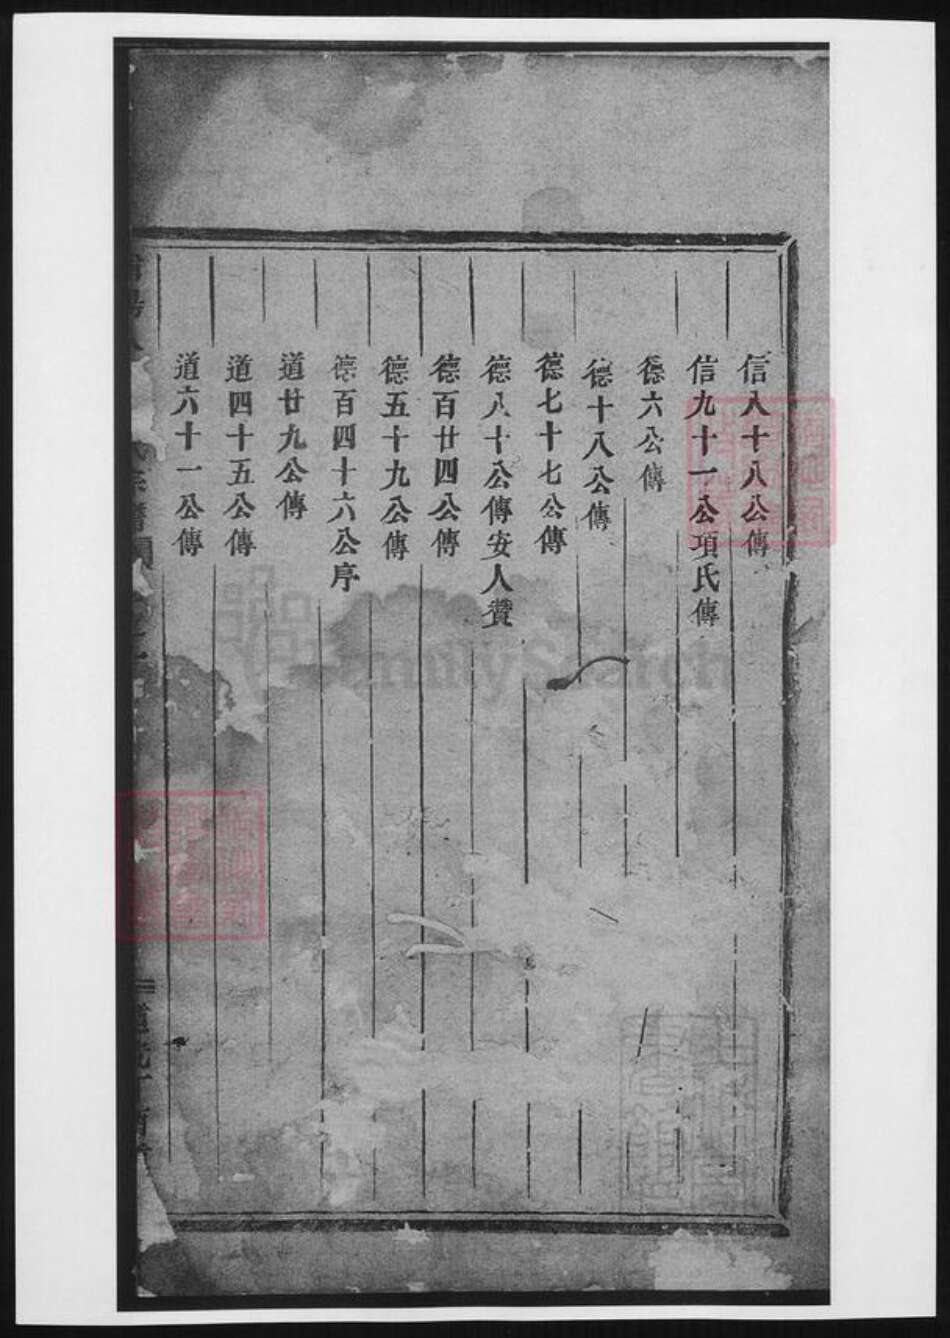 信八十八公傳
信九十一公項氏傳
德六公傳
德十八公傳
德七十七公傳
德八十公傳安人贊
德百廿四公傳
德五十九公傳
德百四十六公序
道廿九公傳
道四十五公傳
道六十一公傳
FamilySearch